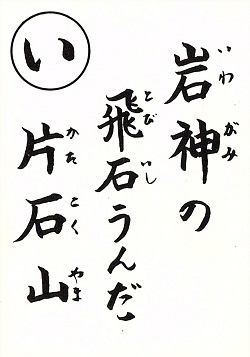 い
岩神の
いわがみ
飛石うんだ
とびいし
片石山
かたこくやま